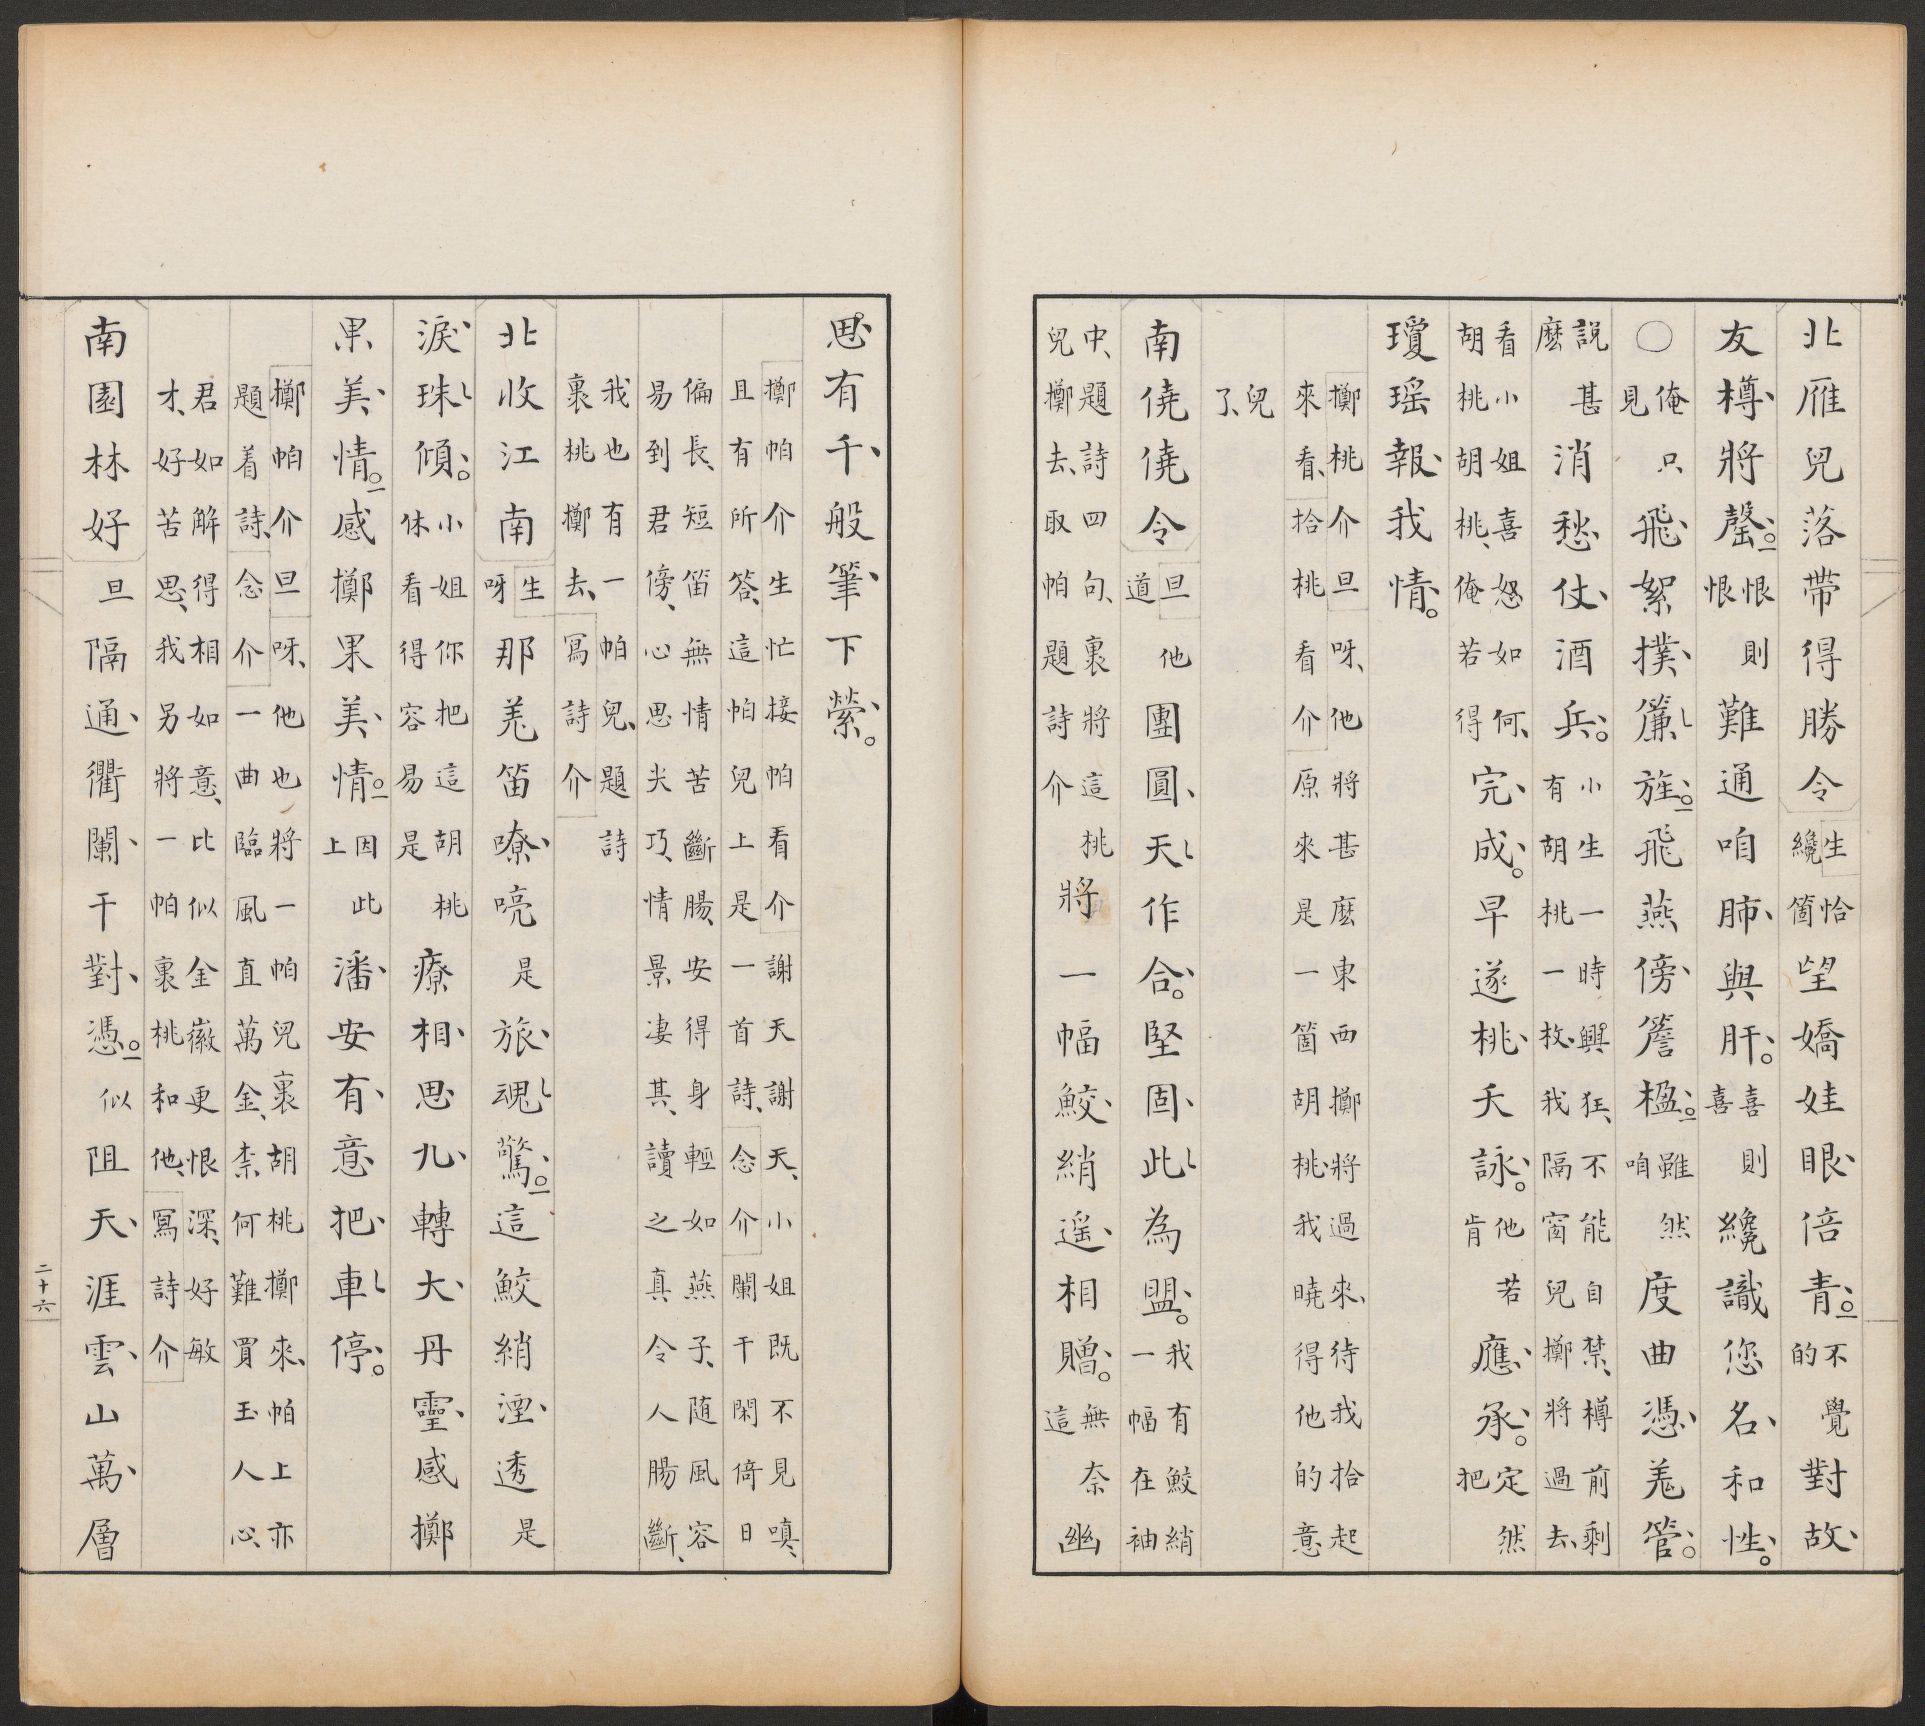 北雁兒落帶得勝令生恰纔箇望嬌娃眼倍青不覺的對故
友樽將罄恨恨則難通咱肺與肝喜喜則纔識您名和性
〇俺只見飛絮撲簾旌飛燕傍簷楹雖然咱度曲憑羌管
説甚麽消愁仗酒兵小生一時興狂不能自禁樽前剩有胡桃一枚我隔窗兒擲將過去
看小姐喜怒如何胡桃胡桃俺若得完成早遂桃夭詠他若肯應承定然把
瓊瑤報我情
擲桃介旦呀他將甚麽東西擲將過來待我拾起來看拾桃看介原來是一箇胡桃我曉得他的意
兒了
南僥僥令旦他道團圓天作合堅固此為盟我有鮫綃一幅在袖
中題詩四句裹將這桃兒擲去取帕題詩介將一幅鮫綃遥相贈無奈這幽
思有千般筆下縈
擲帕介生忙接帕看介謝天謝天小姐既不見嗔且有所答這帕兒上是一首詩念介闌干閑倚日
偏長短笛無情苦斷腸安得身輕如燕子随風容易到君傍心思尖巧情景凄其讀之真令人腸斷
我也有一帕兒題詩裹桃擲去寫詩介
北收江南生呀那羌笛嘹喨是旅魂驚這鮫綃溼透是
淚珠傾小姐你把這胡桃休看得容易是療相思九轉大丹靈感擲
果美情感擲果美情因此上潘安有意把車停
擲帕介旦呀他也將一帕兒裹胡桃擲來帕上亦題着詩念介一曲臨風直萬金柰何難買玉人心
君如解得相如意比似金徽更恨深好敏才好苦思我另將一帕裹桃和他寫詩介
南園林好旦隔通衢闌干對憑似阻天涯雲山萬層
二十六